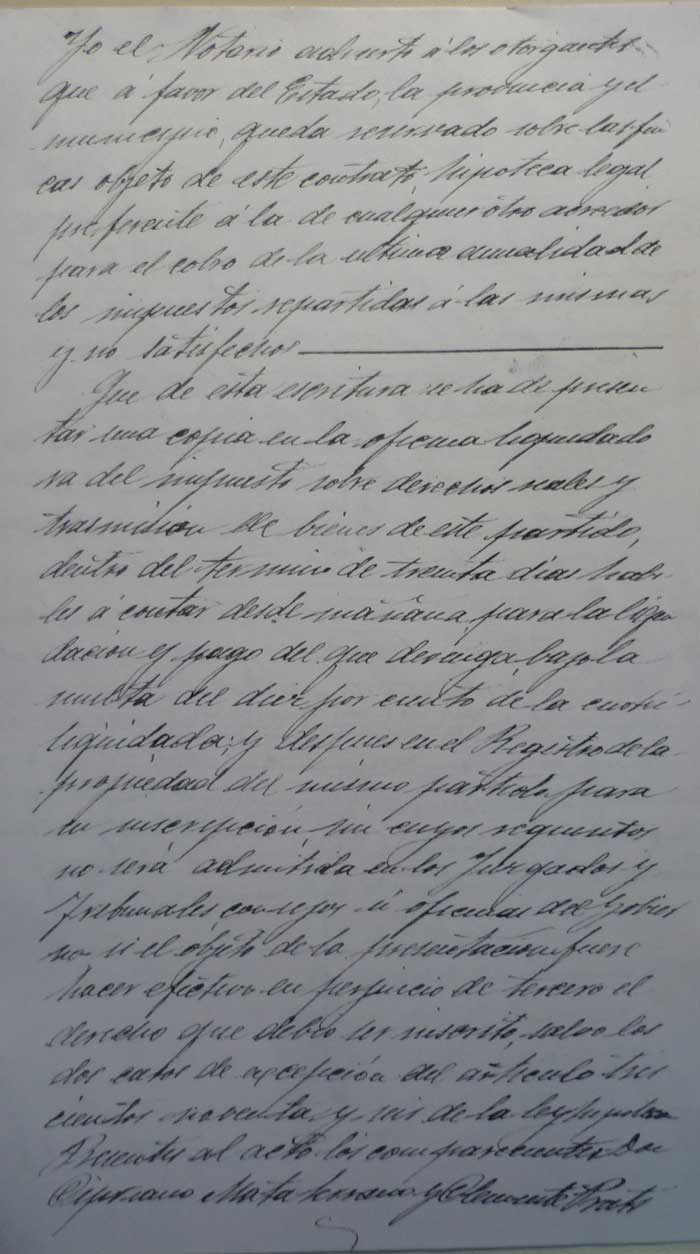 Yo el Notario advierto á los otorgantes
que á favor del Estado, la provincia y el
municipio, queda reservado sobre las fin
cas objeto de este contrato, hipoteca legal
preferente á la de cualquier otro acreedor
para el cobro de la ultima anualidad de
los impuestos repartidos á las mismas
y no satisfechos
Que de esta escritura se ha de presen
tar una copia en la oficina liquidado
ra del impuesto sobre derechos reales y
trasmision de bienes de este partido,
dentro del termino de treinta dias habi
les á contar desde mañana para la liqui
dacion y pago del que devenga, bajo la
multa del diez por ciento de la cuota
liquidada; y despues en el Registro de la
propiedad del mismo partido para
su inscripción, sin cuyos requisitos
no será admitida en los Juzgados y
Tribunales, consejos ú oficinas del Gobier
no si el objeto de la presentacion fuere
hacer efectivo en perjuicio de tercero el
derecho que debio ser inscrito, salvo los
dos casos de excepción del articulo tres
cientos noventa y seis de la ley hipoteca
Presentes al acto los comparecientes Don
Cipriano Mata Serrano y Clemente